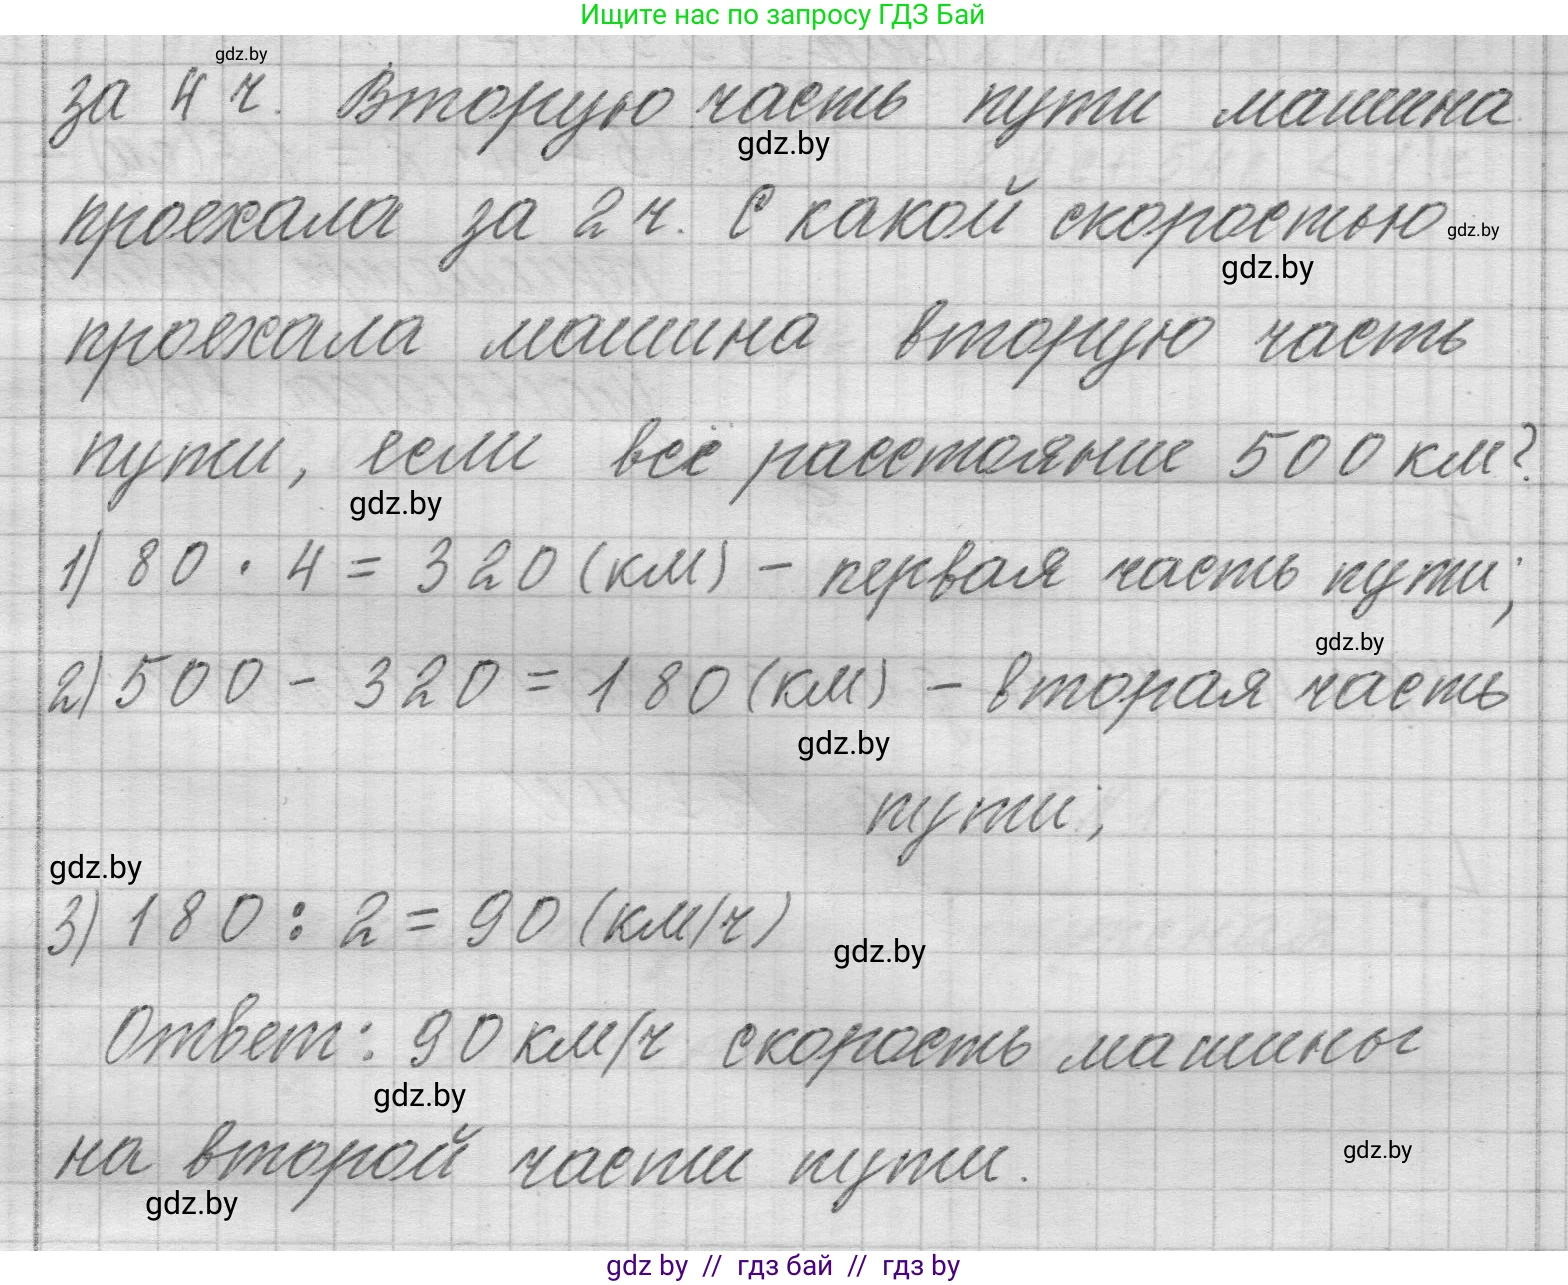 Ищите нас по запросу ГДЗ Бай
gdz.by
за 4 ч. Вторую часть пути машина
gdz.by
проехала за 2 ч. С какой скоростью
gdz.by
gdz.by
проехала машина вторую часть
пути, если всё расстояние 500 км?
gdz.by
1) 80 · 4 = 320 (км) – первая часть пути;
gdz.by
2) 500 - 320 = 180 (км) – вторая часть
gdz.by
пути;
gdz.by
3) 180 : 2 = 90 (км/ч)
gdz.by
Ответ: 90 км/ч скорость машины
gdz.by
на второй части пути.
gdz.by
gdz.by
gdz by // гдз бай // гдз by